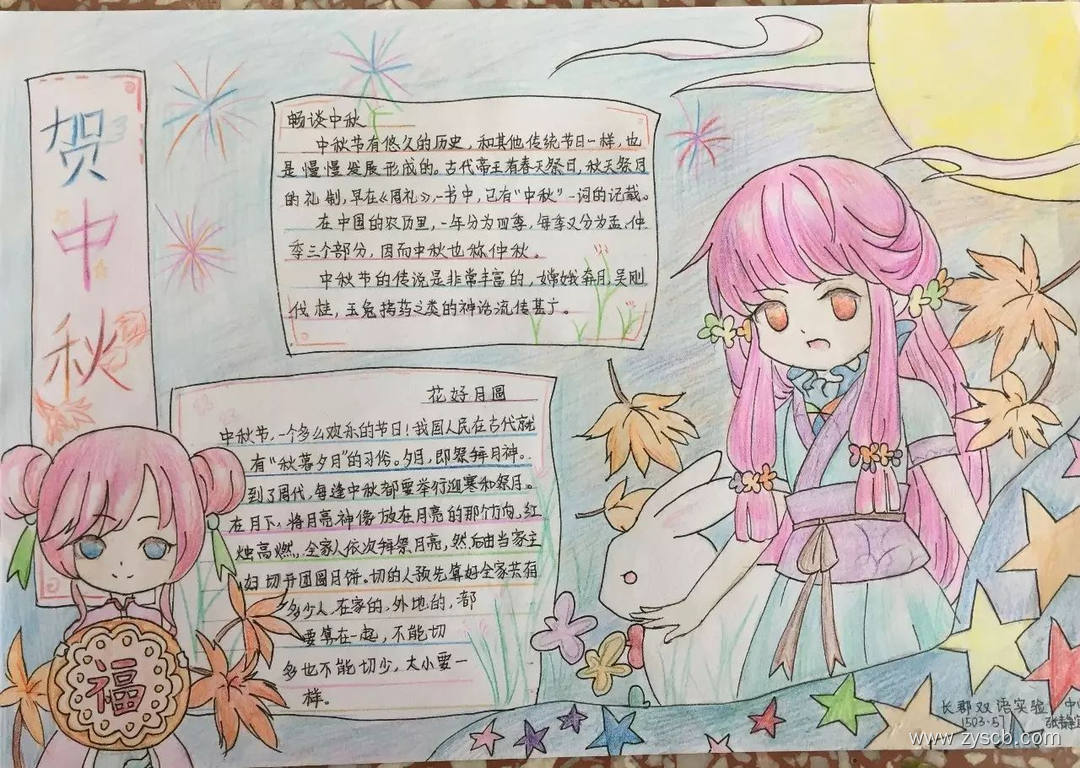 贺中秋
畅谈中秋
中秋节有悠久的历史，和其他传统节日一样，也
是慢慢发展形成的。古代帝王有春天祭日，秋天祭月
的礼制，早在《周礼》一书中，已有“中秋”一词的记载。
在中国的农历里，一年分为四季，每季又分为孟、仲
季三个部分，因而中秋也称仲秋。
中秋节的传说是非常丰富的，嫦娥奔月，吴刚
伐桂，玉兔捣药之类的神话流传甚广。
花好月圆
中秋节，一个多么欢乐的节日！我国人民在古代就
有“秋暮夕月”的习俗。夕月，即祭拜月神。
到了周代，每逢中秋都要举行迎寒和祭月。
在月下，将月亮神像放在月亮的那个方向，红
烛高燃，全家人依次拜祭月亮，然后由当家主
妇切开团圆月饼。切的人预先算好全家共有
多少人，在家的，外地的，都
要算在一起，不能切
多也不能切少，大小要一
样。
福
长郡双语实验 中
1503·57
www.zyscb.com